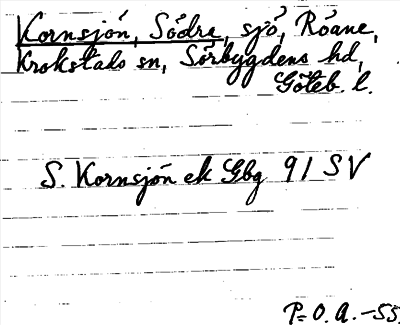 Kornsjön, Södra, sjö, Röane,
Krokstads sn, Sörbygdens hd,
Göteb. l.
S. Kornsjön ek Gbg 91 SV
P.O.A. -55.